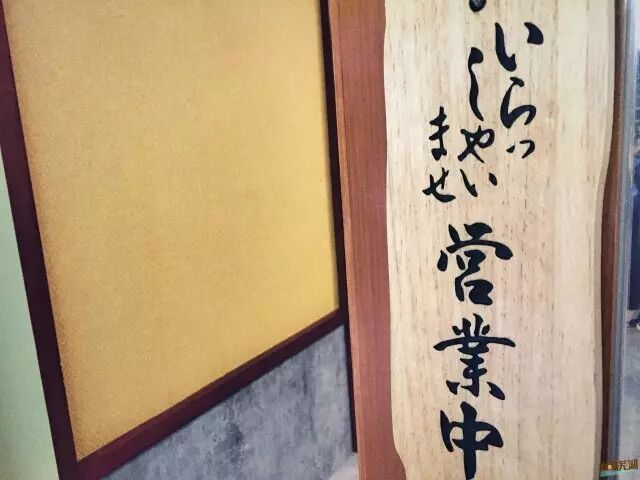 いらっ
しゃい
ませ
営業中
芜湖